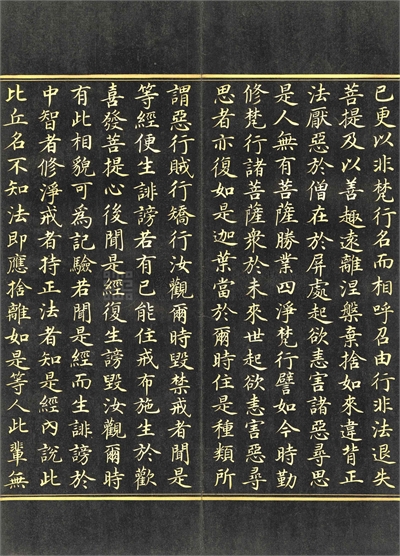 已更以非梵行名而相呼召由行非法退失
菩提及以善趣遠離涅槃棄捨如來違背正
法厭惡於僧在於屏處起欲恚害諸惡尋思
是人無有菩薩勝業四淨梵行譬如今時勤
修梵行諸菩薩衆於未來世起欲恚害惡尋
思者亦復如是迦葉當於爾時住是種類所
謂惡行賊行矯行汝觀爾時毀禁戒者聞是
等經便生誹謗若有已能住戒布施生於歡
喜發菩提心後聞是經復生謗毀汝觀爾時
有此相貌可為記驗若聞是經而生誹謗於
中智者修淨戒者持正法者知是經內說此
比丘名不知法即應捨離如是等人此輩無